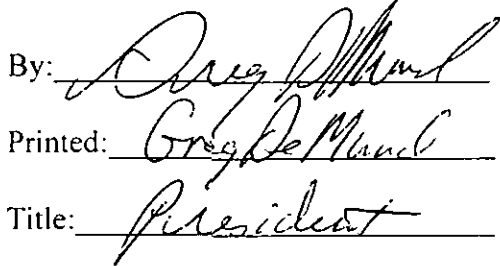 By: Greg DeMund
Printed: Greg DeMund
Title: President